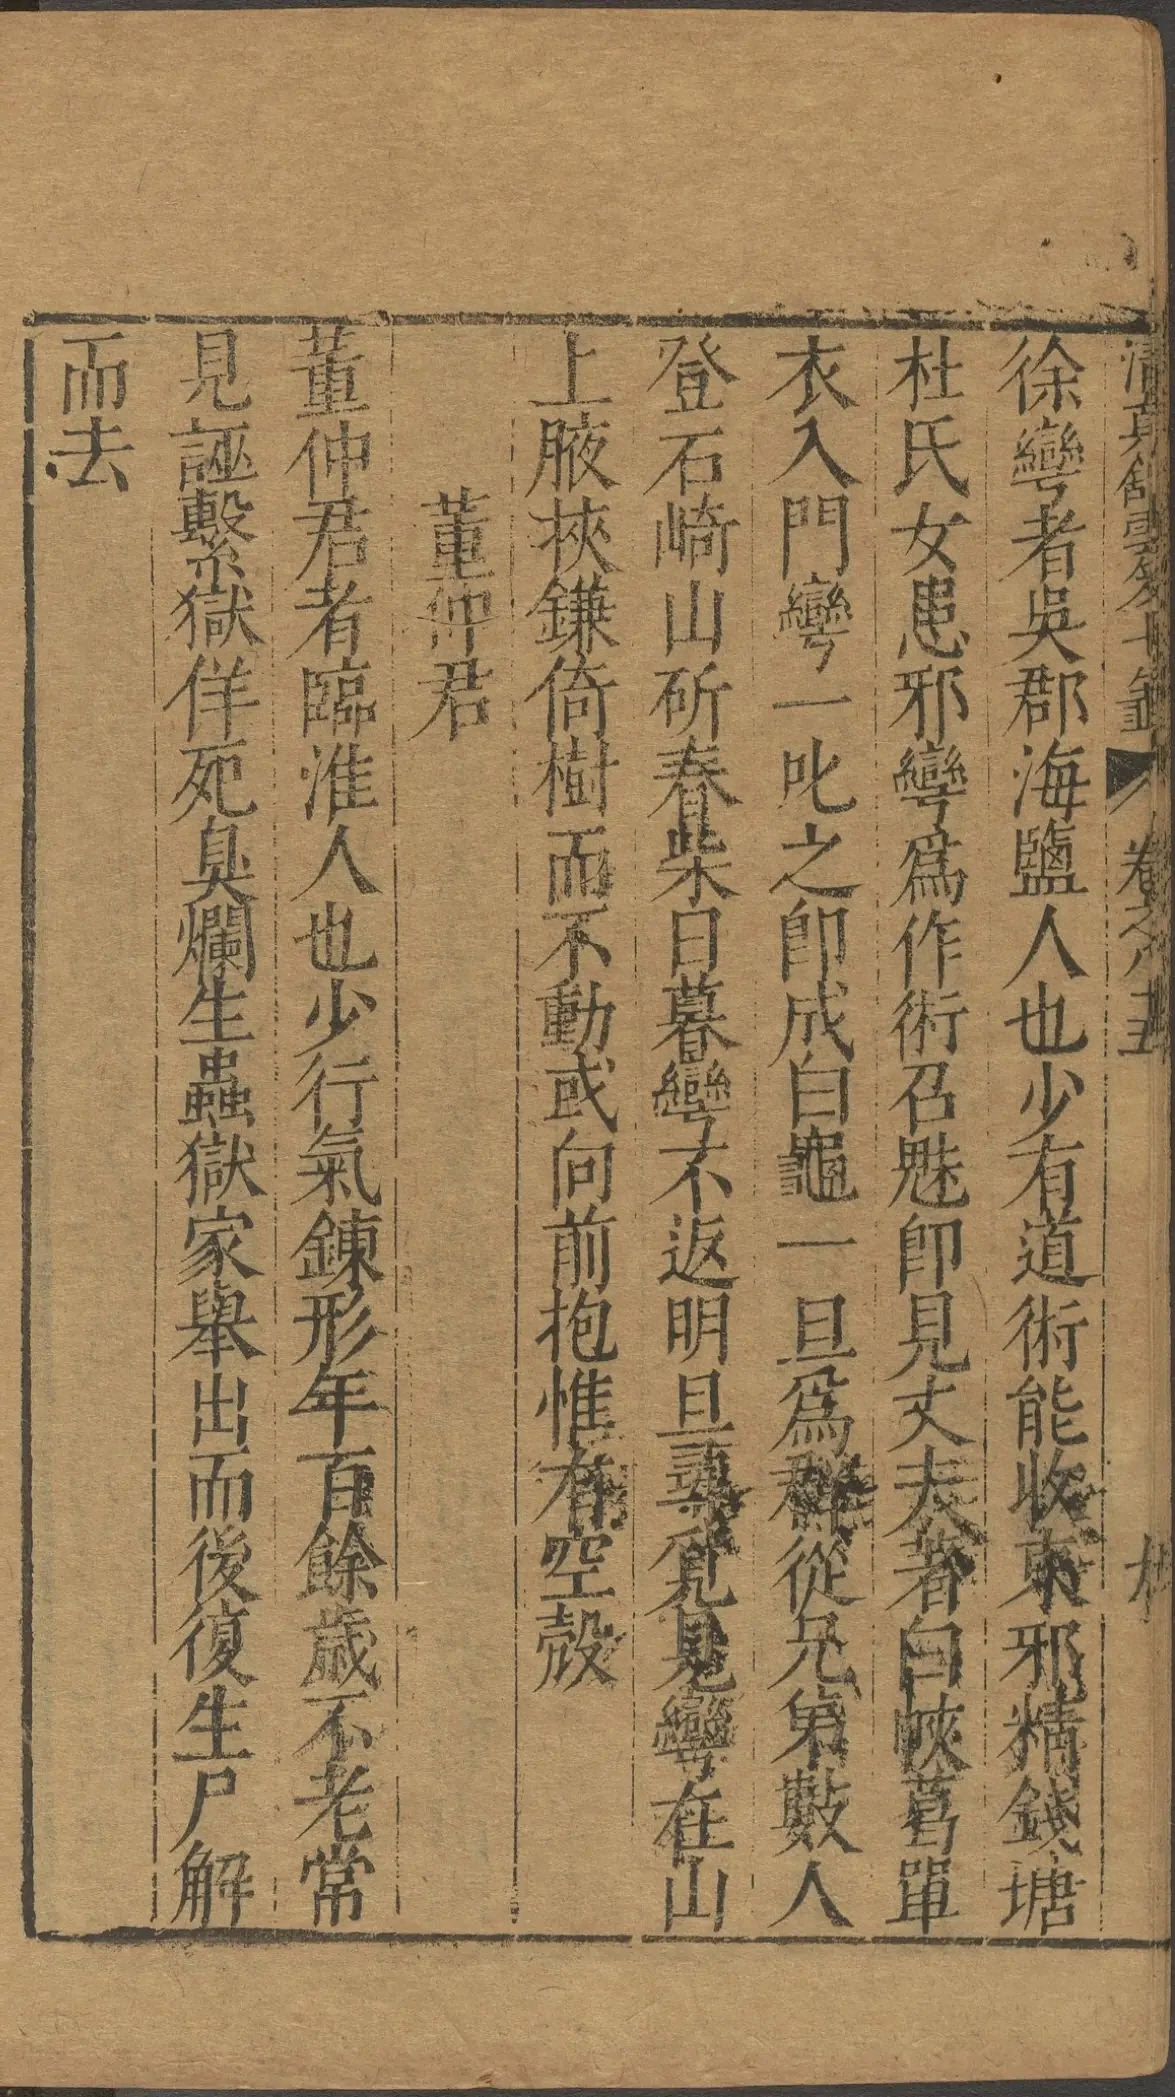 卷之八五
徐彎者吳郡海鹽人也少有道術能收束邪精錢塘
杜氏女患邪彎爲作術召魅卽見丈夫著白帢葛單
衣入門彎一叱之卽成白龜一旦爲群從兄弟數人
登石崎山斫春柴日暮彎不返明旦尋覓見彎在山
上腋挾鎌倚樹而不動或向前抱惟有空殼
董仲君
董仲君者臨淮人也少行氣鍊形年百餘歲不老常
見誣繫獄佯死臭爛生蟲獄家舉出而後復生尸解
而去